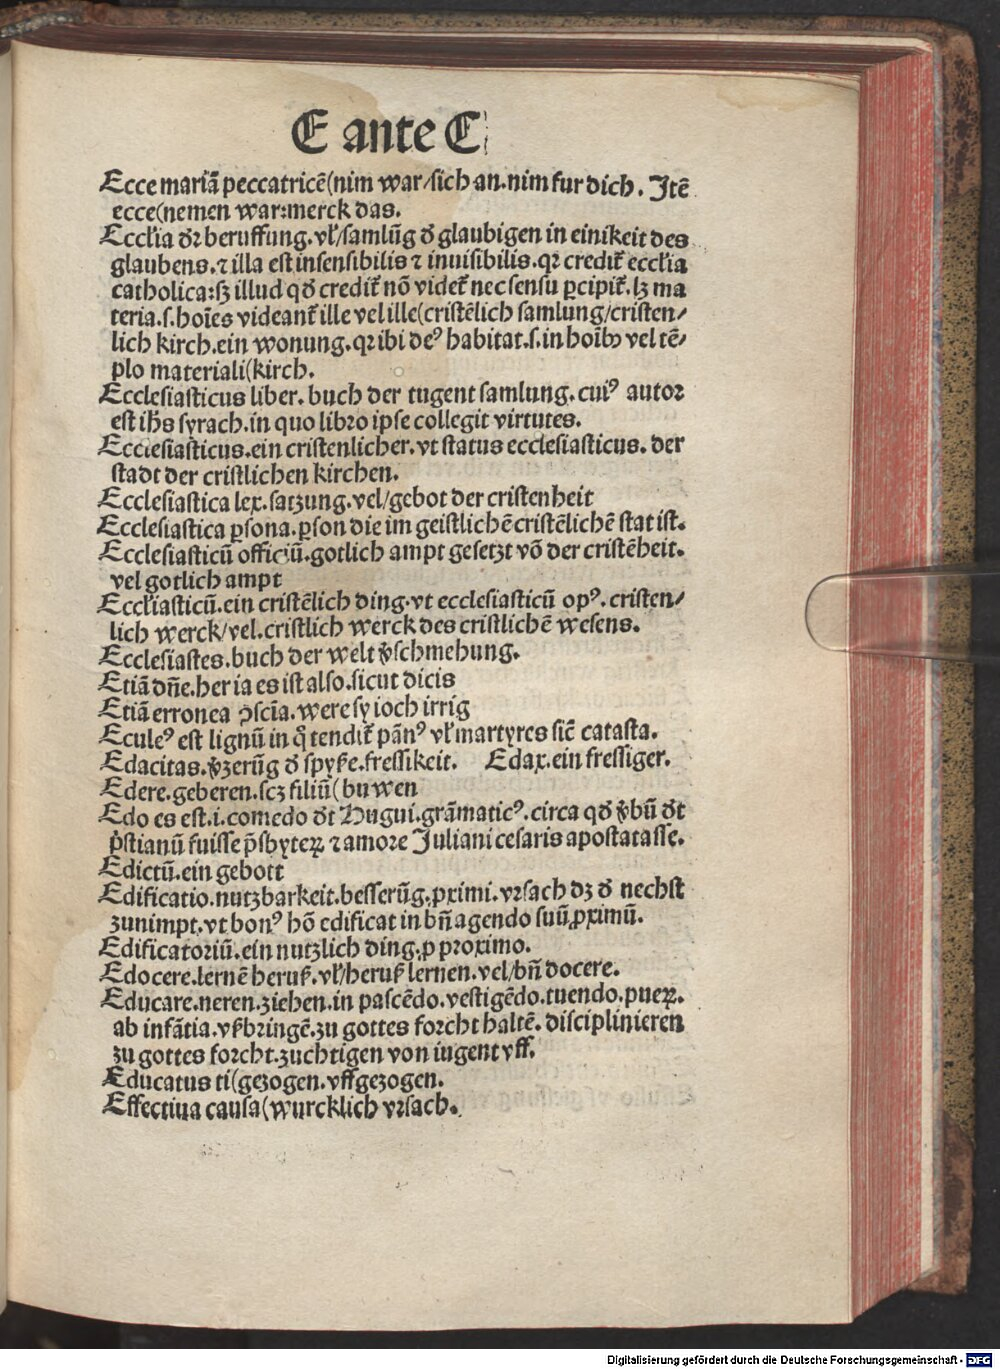 E ante C
Ecce mariā peccatricē(nim war/sich an.nim fur dich. Itē
ecce(nemen war:merck das.
Eccl'ia d'r beruffung.vl'/samlūg d' glaubigen in einikeit des
glaubens.⁊ illa est insensibilis ⁊ inuisibilis.qꝛ credit̃ eccl'ia
catholica:sꝫ illud qd' credit̃ nō videt̃ nec sensu ꝑcipit̃.lꝫ ma
teria.s.hoīes videant̃ ille vel ille(cristēlich samlung/cristen/
lich kirch.ein wonung.qꝛ ibi deꝰ habitat.s.in hoībꝰ vel tē/
plo materiali(kirch.
Ecclesiasticus liber. buch der tugent samlung. cuiꝰ autor
est ih̃s syrach.in quo libro ipse collegit virtutes.
Ecclesiasticus.ein cristenlicher.vt status ecclesiasticus. der
stadt der cristlichen kirchen.
Ecclesiastica lex.satzung.vel/gebot der cristenheit
Ecclesiastica ꝑsona.ꝑson die im geistlichē cristēlichē stat ist.
Ecclesiasticū officiū.gotlich ampt gesetzt vō der cristēheit.
vel gotlich ampt
Eccl'iasticū.ein cristēlich ding.vt ecclesiasticū opꝰ. cristen/
lich werck/vel.cristlich werck des cristlichē wesens.
Ecclesiastes.buch der welt v'schmehung.
Etiā dn̄e.her ia es ist also.sicut dicis
Etiā erronea ꝯscīa.were sy ioch irrig
Eculeꝰ est lignū in q° tendit̃ pānꝰ vl' martyres sic̃ catasta.
Edacitas.v'zerūg d' spyſe.fressikeit. Edax.ein fressiger.
Edere.geberen.scꝫ filiū(buwen
Edo es est.i.comedo d't Hugui.grāmaticꝰ.circa qd' v'bū d't
p'stianū fuisse p̄sbyteꝝ ⁊ amore Iuliani cesaris apostatasse.
Edictū.ein gebott
Edificatio.nutzbarkeit.besserūg.ꝓximi.vrsach dz d' nechst
zunimpt.vt bonꝰ hō edificat in bn̄ agendo suū ꝓximū.
Edificatoriū.ein nutzlich ding.ꝓ proximo.
Edocere.lernē herus̃.vl'/herus̃ lernen.vel/bn̄ docere.
Educare.neren.ziehen.in pascēdo.vestigēdo.tuendo.pueꝝ.
ab infātia.vs̃bringē.zu gottes forcht haltē. disciplinieren
zu gottes forcht.zuchtigen von iugent vff.
Educatus ti(gezogen.vffgezogen.
Effectiua causa(wurcklich vrsach.
Digitalisierung gefördert durch die Deutsche Forschungsgemeinschaft - DFG